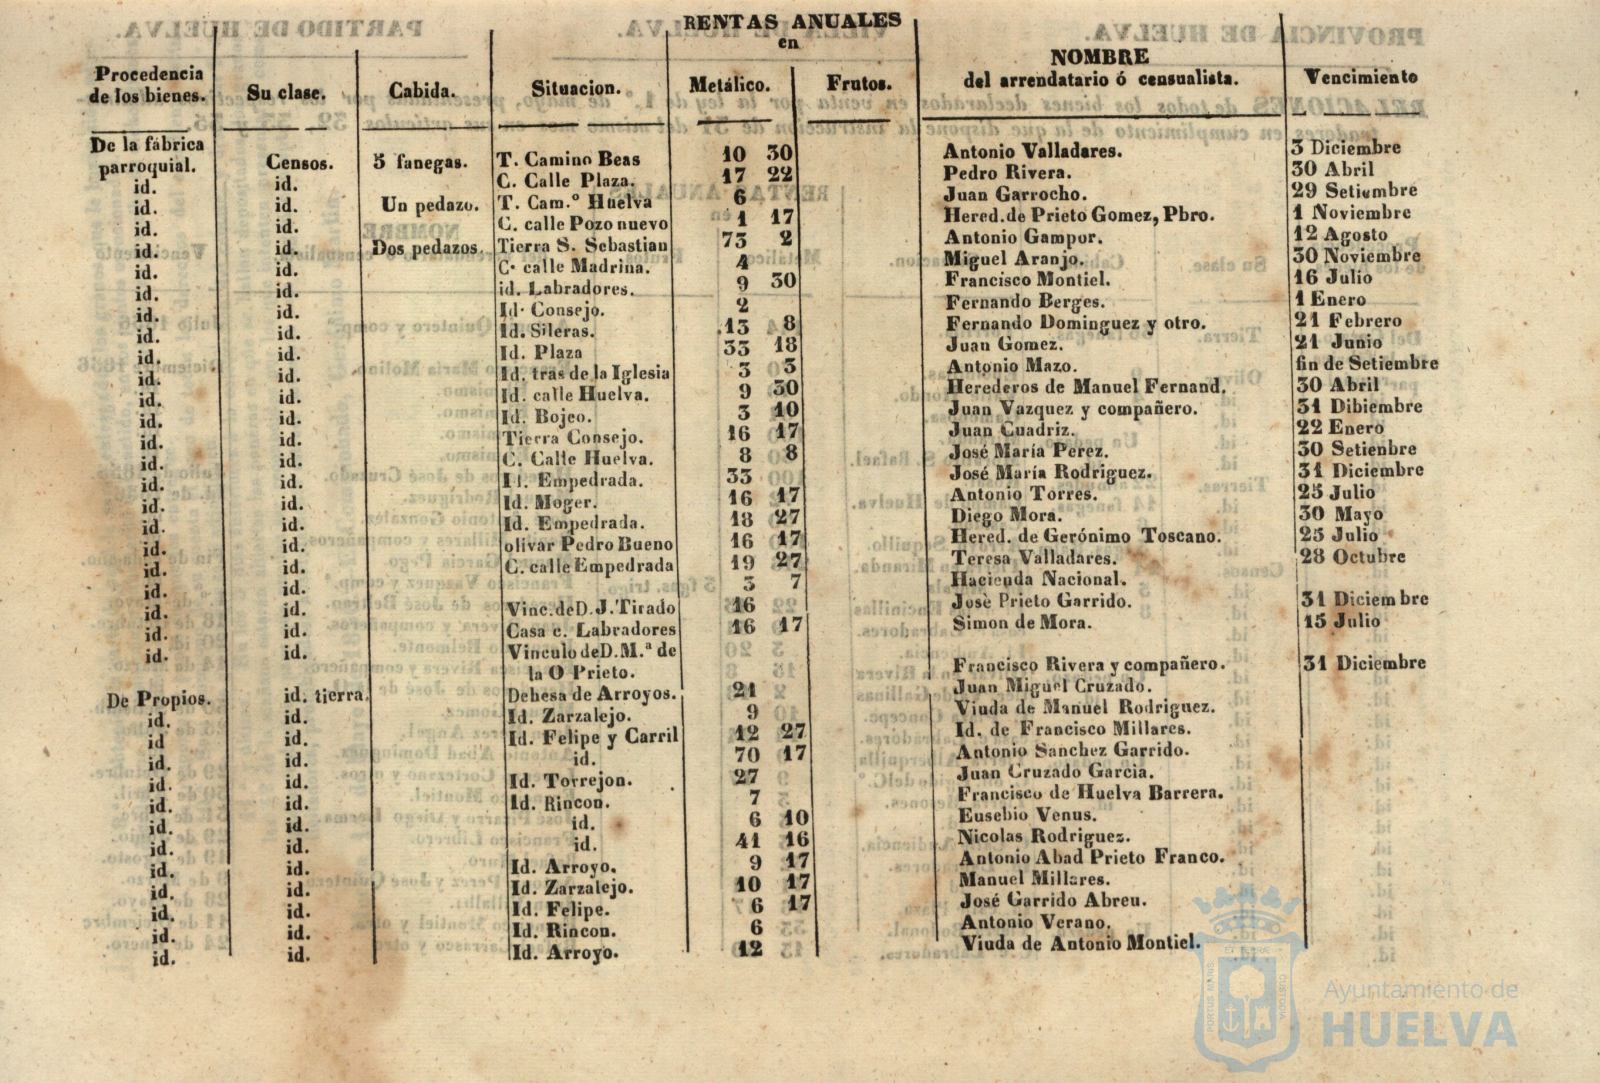 RENTAS ANUALES
en
Procedencia de los bienes. Su clase. Cabida. Situacion. Metálico. Frutos. NOMBRE del arrendatario ó censualista. Vencimiento
De la fábrica parroquial. Censos. 5 fanegas. T. Camino Beas 10 30 Antonio Valladares. 3 Diciembre
id. id. C. Calle Plaza. 17 22 Pedro Rivera. 30 Abril
id. id. Un pedazo. T. Cam.º Huelva 6 Juan Garrocho. 29 Setiembre
id. id. C. calle Pozo nuevo 1 17 Hered. de Prieto Gomez, Pbro. 1 Noviembre
id. id. Dos pedazos. Tierra S. Sebastian 73 2 Antonio Gampor. 12 Agosto
id. id. C. calle Madrina. 4 Miguel Aranjo. 30 Noviembre
id. id. id. Labradores. 9 30 Francisco Montiel. 16 Julio
id. id. Id. Consejo. 2 Fernando Berges. 1 Enero
id. id. Id. Sileras. 13 8 Fernando Dominguez y otro. 21 Febrero
id. id. Id. Plaza 33 18 Juan Gomez. 21 Junio
id. id. Id. tras de la Iglesia 3 3 Antonio Mazo. fin de Setiembre
id. id. Id. calle Huelva. 9 30 Herederos de Manuel Fernand. 30 Abril
id. id. Id. Bojeo. 3 10 Juan Vazquez y compañero. 31 Dibiembre
id. id. Tierra Consejo. 16 17 Juan Cuadriz. 22 Enero
id. id. C. Calle Huelva. 8 8 José María Perez. 30 Setienbre
id. id. Id. Empedrada. 33 José María Rodriguez. 31 Diciembre
id. id. Id. Moger. 16 17 Antonio Torres. 25 Julio
id. id. Id. Empedrada. 18 27 Diego Mora. 30 Mayo
id. id. olivar Pedro Bueno 16 17 Hered. de Gerónimo Toscano. 25 Julio
id. id. C. calle Empedrada 19 27 Teresa Valladares. 28 Octubre
id. id. 3 7 Hacienda Nacional.
id. id. Vinc. de D. J. Tirado 16 Josè Prieto Garrido. 31 Diciembre
id. id. Casa c. Labradores 16 17 Simon de Mora. 15 Julio
id. id. Vinculo de D. M.ª de
la O Prieto. Francisco Rivera y compañero. 31 Diciembre
De Propios. id. tierra. Dehesa de Arroyos. 21 Juan Miguel Cruzado.
id. id. Id. Zarzalejo. 9 Viuda de Manuel Rodriguez.
id id. Id. Felipe y Carril 12 27 Id. de Francisco Millares.
id. id. id. 70 17 Antonio Sanchez Garrido.
id. id. Id. Torrejon. 27 Juan Cruzado Garcia.
id. id. Id. Rincon. 7 Francisco de Huelva Barrera.
id. id. id. 6 10 Eusebio Venus.
id. id. id. 41 16 Nicolas Rodriguez.
id. id. Id. Arroyo. 9 17 Antonio Abad Prieto Franco.
id. id. Id. Zarzalejo. 10 17 Manuel Millares.
id. id. Id. Felipe. 6 17 José Garrido Abreu.
id. id. Id. Rincon. 6 Antonio Verano.
id. id. Id. Arroyo. 12 Viuda de Antonio Montiel.
PORTUS MARIS ET TERRÆ CUSTODIA
Ayuntamiento de
HUELVA